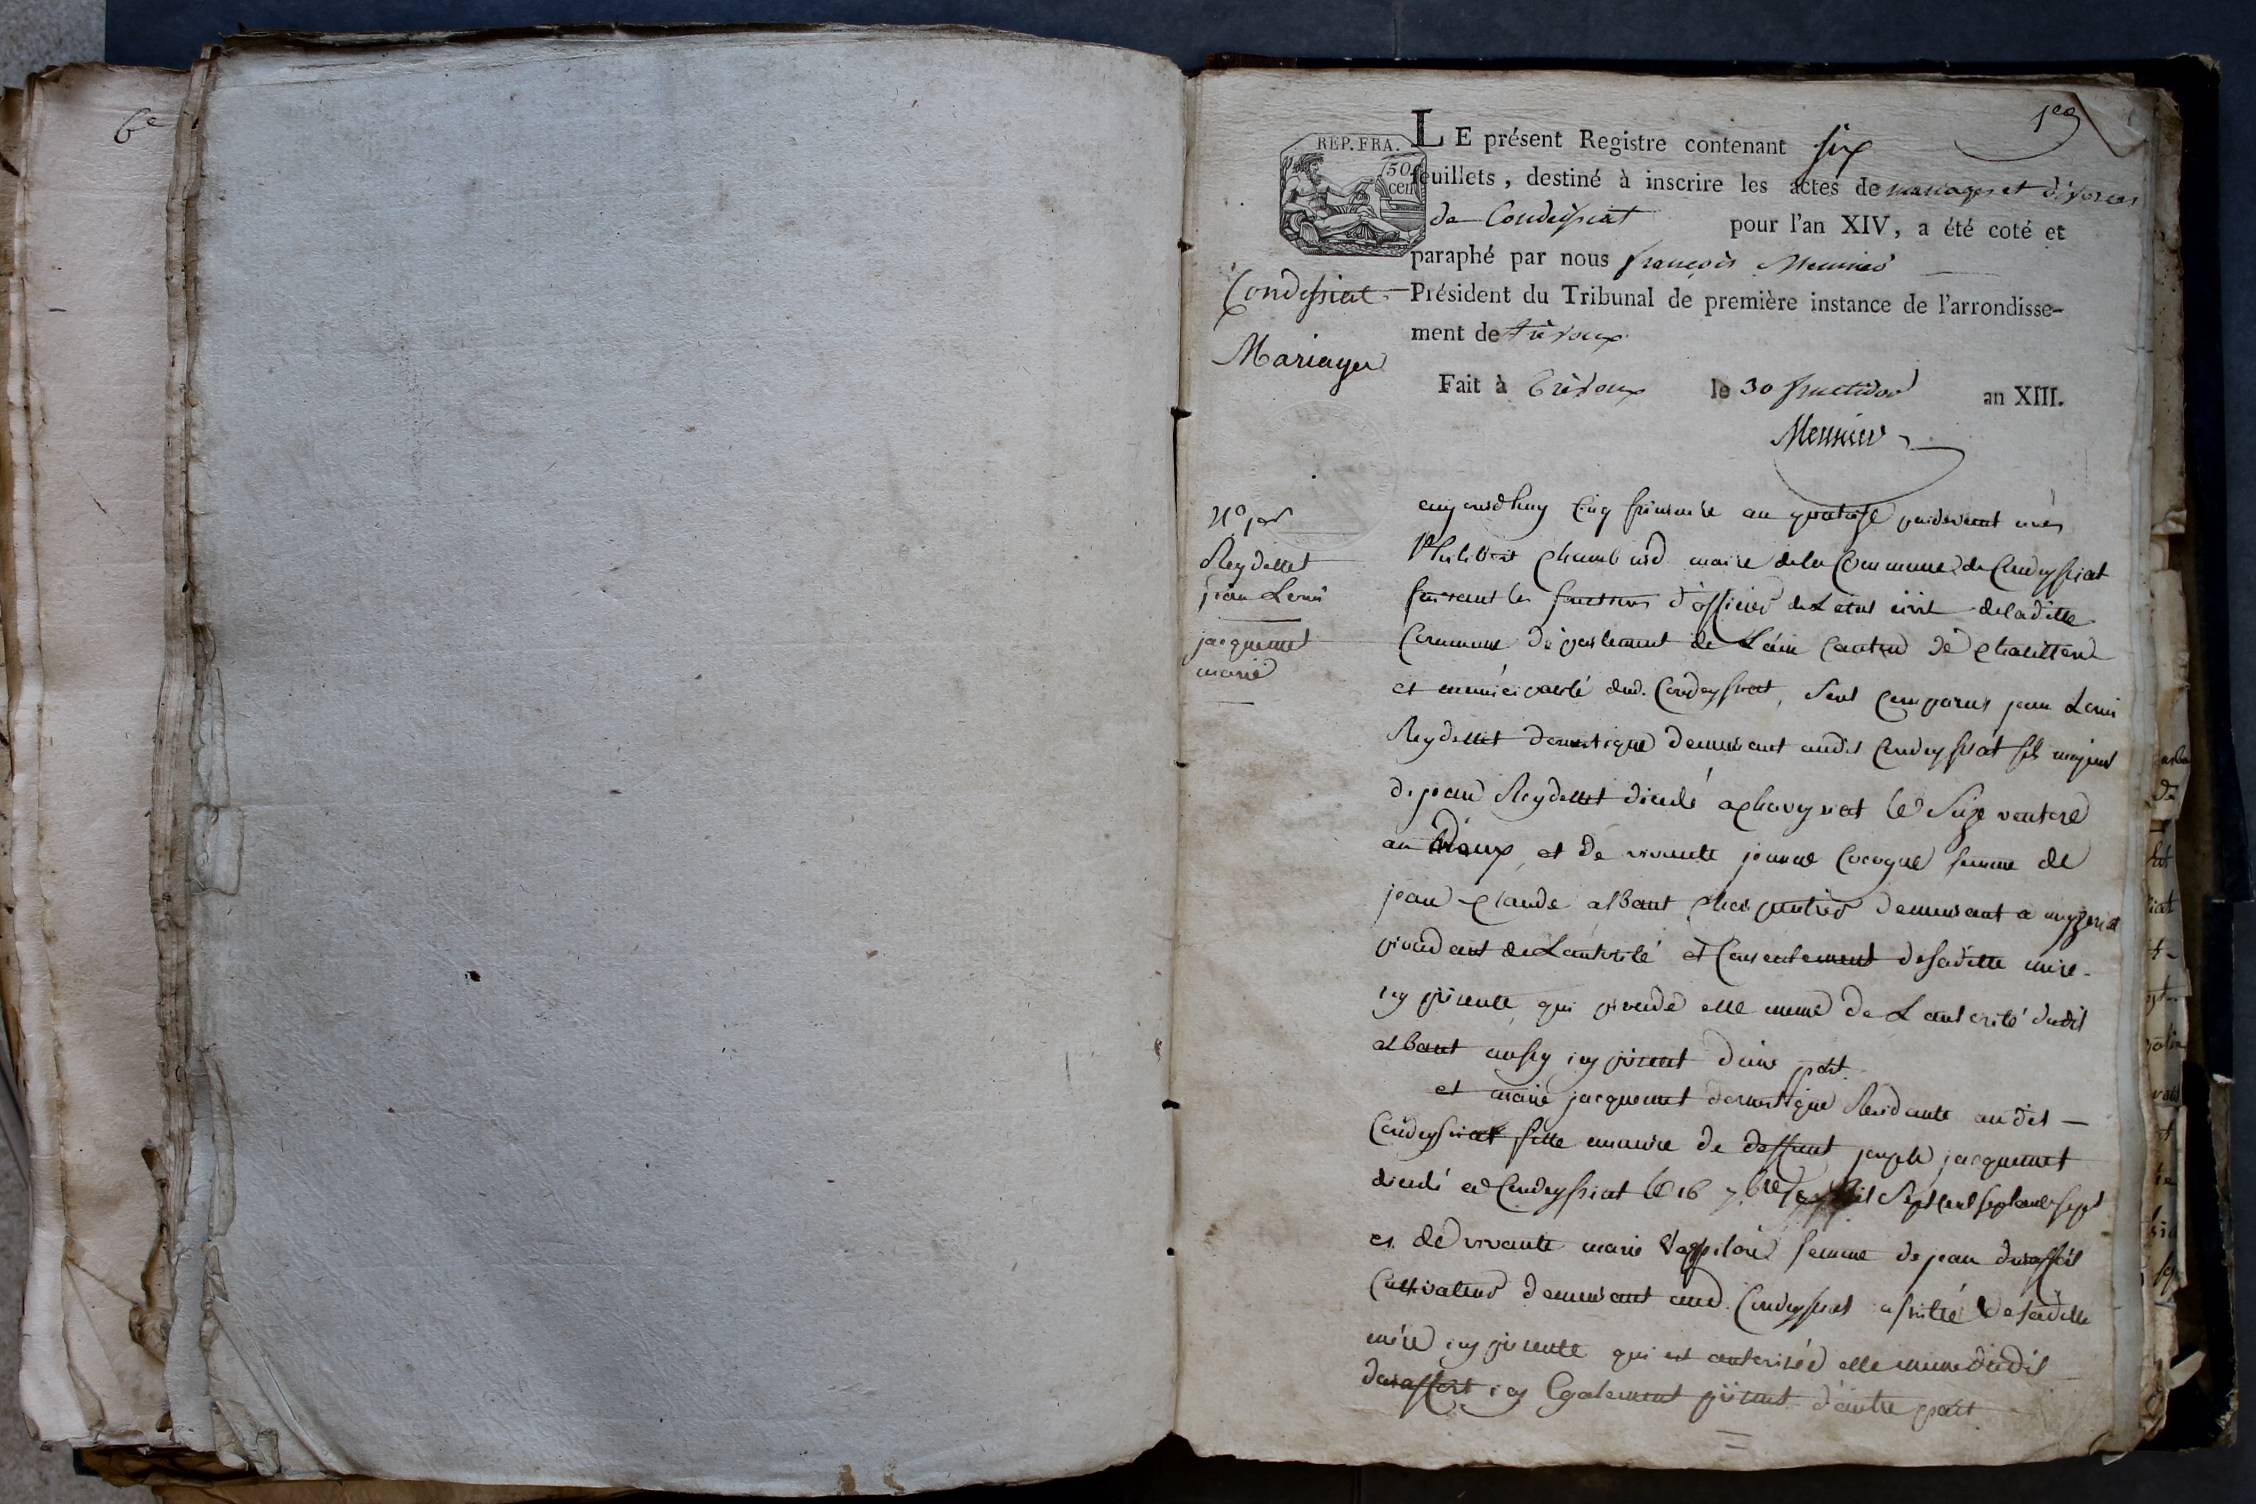 6e
1er
REP. FRA.
50
cen
LE présent Registre contenant six
feuillets, destiné à inscrire les actes de mariages et divorces
de Condeissiat pour l'an XIV, a été coté et
paraphé par nous françois Meunier
Président du Tribunal de première instance de l'arrondisse-
ment de trévoux
Fait à Trévoux le 30 fructidor an XIII.
Meunier
Condeissiat
Mariages
N° 1er
Reydellet
jean Louis
jacquemet
marie
aujourdhuy Cinq frimaire an quatorze pardevant nous
Philibert Chambard maire de la Commune de Condeyssiat
faisant les fonctions d'officier de L'état civil de laditte
Commune département de L'ain Canton de Chatillon
et municipalité dud. Condeyssiat, sont Comparus jean Louis
Reydellet domestique demeurant audit Condeyssiat fils majeur
de jean Reydellet décédé a Chaveyriat le Six ventose
an deux, et de vivante jeanne Cocogne femme de
jean Claude alBant Charpentier demeurant a
procédant de L'autorité et Consentement de saditte mère
icy présente, qui procède elle meme de L'autorité dudit
alBant aussy icy présent d'une part.
et marie jacquemet domestique Residante audit
Condeyssiat fille mineure de deffunt joseph jacquemet
décédé a Condeyssiat le 16 7bre mil Sept Cent septante sept
et de vivante marie femme de jean duraffort
Cultivateur demeurant aud. Condeyssiat de saditte
mère icy présente qui est autorisée elle meme dudit
duraffort icy Egalement présent d'autre part